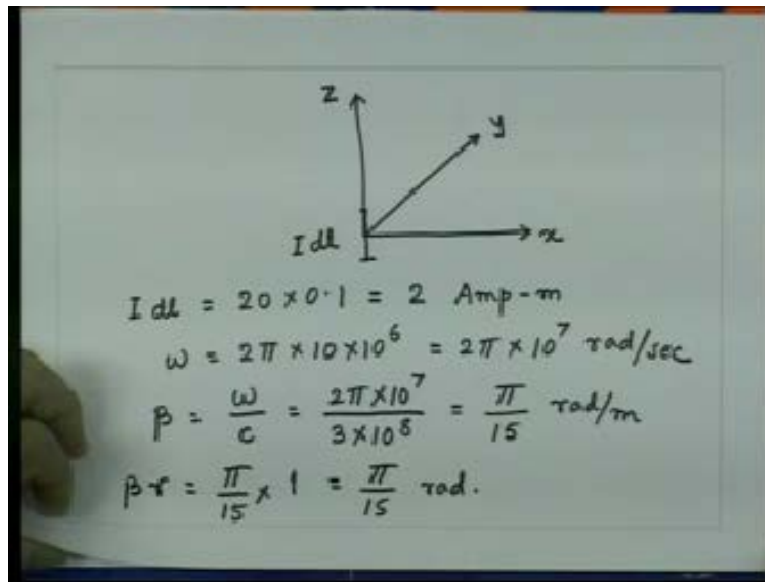 z
y
I dl
x
I dl = 20 × 0.1 = 2 Amp-m
ω = 2π × 10 × 10⁶ = 2π × 10⁷ rad/sec
β = ω/c = 2π×10⁷/3×10⁸ = π/15 rad/m
βr = π/15 × 1 = π/15 rad.